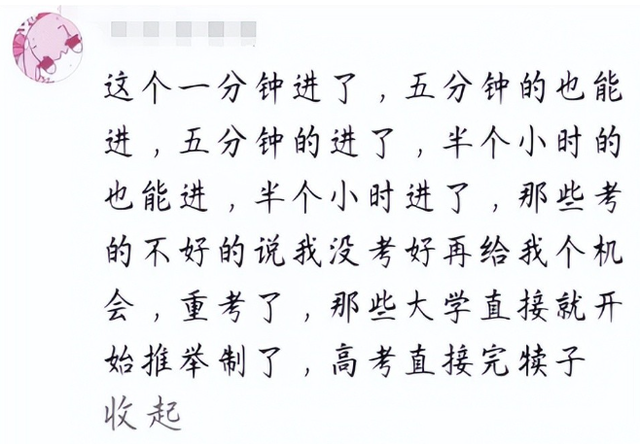 这个一分钟进了，五分钟的也能
进，五分钟的进了，半个小时的
也能进，半个小时进了，那些考
的不好的说我没考好再给我个机
会，重考了，那些大学直接就开
始推举制了，高考直接完犊子
收起